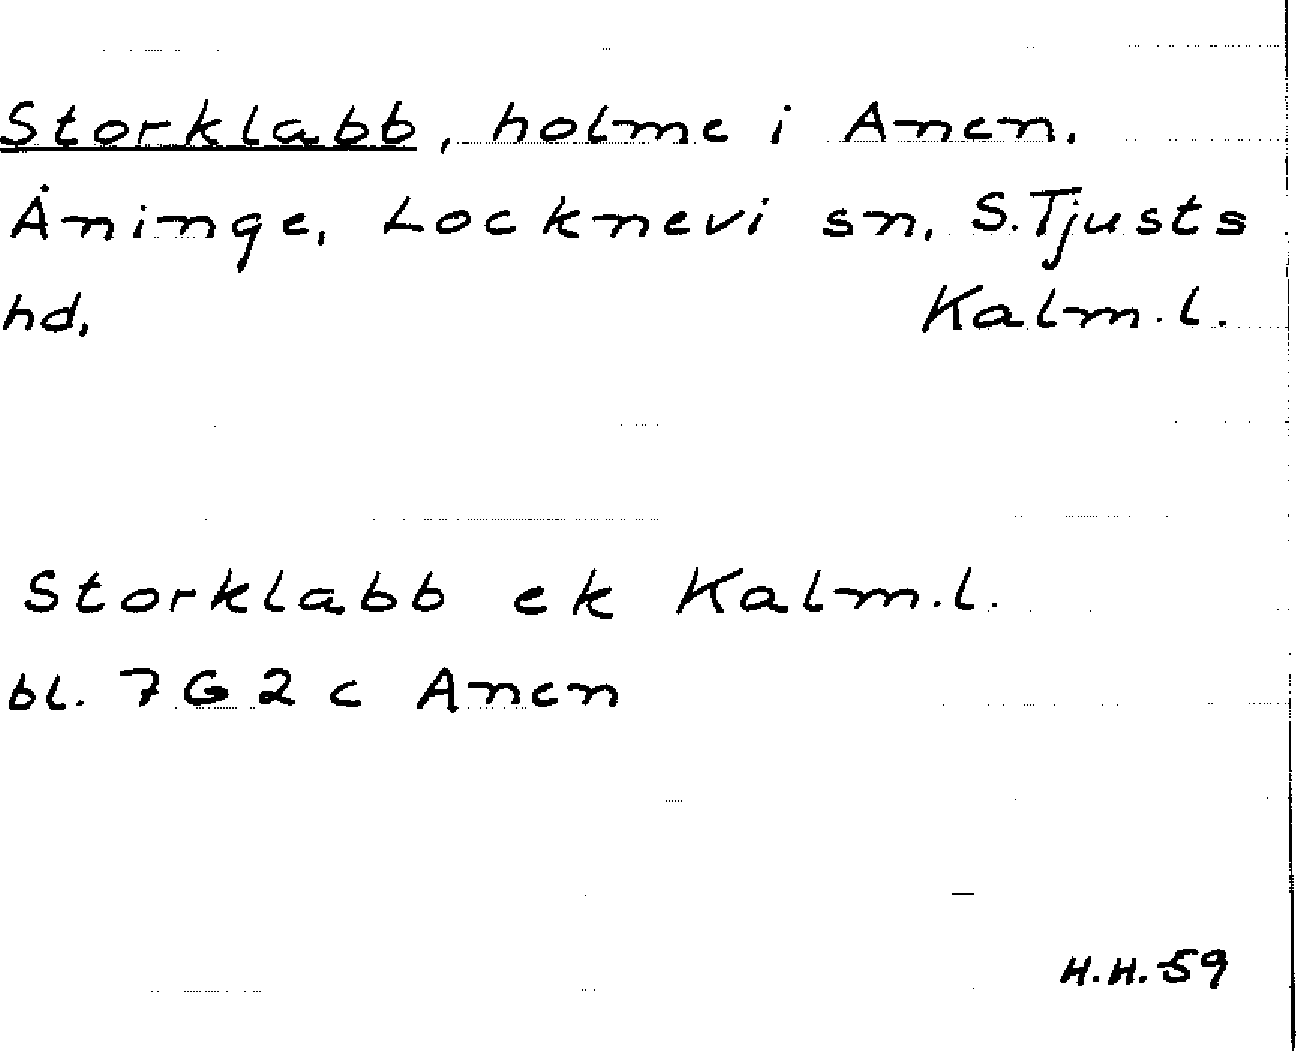 Storklabb, holme i Anen.
Åninge, Locknevi sn, S.Tjusts
hd, Kalm.l.
Storklabb ek Kalm.l.
bl. 7G2c Anen
H.H.59